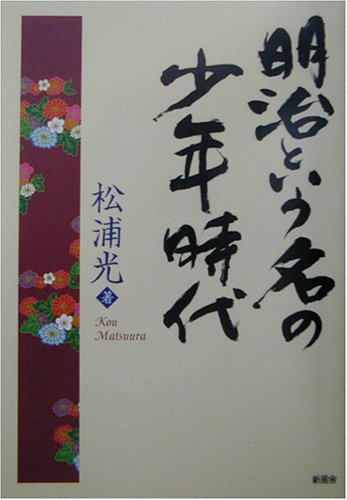 明治という名の
少年時代
松浦光著
Kou
Matsuura
新風舎